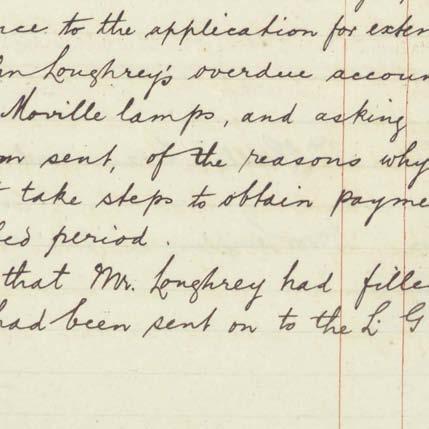 nce to the application for exten
hn Loughrey's overdue accoun
Moville lamps, and asking
m sent, of the reasons why
t take steps to obtain payme
bed period.
that Mr. Loughrey had fille
had been sent on to the L. G